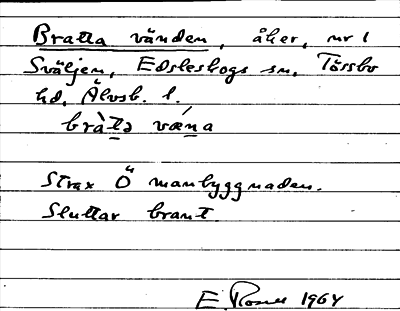 Bratta vänden, åker, nr 1
Sväljen, Edsleskogs sn, Tössbo
hd, Älvsb. l.
bràtə vǽna
Strax Ö manbyggnaden.
Sluttar brant.
E. Rosell 1964